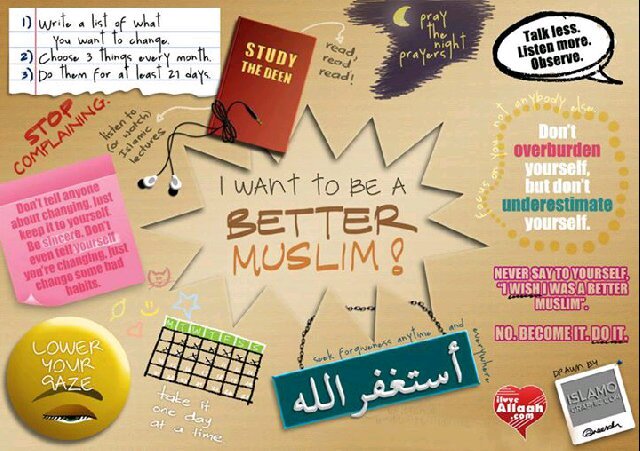 1) Write a list of what
you want to change.
2) Choose 3 things every month.
3) Do them for at least 21 days.
STUDY
THE DEEN
read,
read,
read!
pray
the night
prayers!
Talk less.
Listen more.
Observe.
STOP
COMPLAINING.
listen to
(or watch)
Islamic
lectures
focus on you not anybody else
Don't
overburden
yourself,
but don't
underestimate
yourself.
Don't tell anyone
about changing. Just
keep it to yourself.
Be sincere. Don't
even tell yourself
you're changing. Just
change some bad
habits.
I WANT TO BE A
BETTER
MUSLIM!
NEVER SAY TO YOURSELF,
"I WISH I WAS A BETTER
MUSLIM".
NO. BECOME IT. DO IT.
LOWER
YOUR
GAZE
take it
one day
at a time.
seek forgiveness anytime and everywhere
أستغفر الله
ilove
Allaah
.com
DRAWN BY
ISLAMO